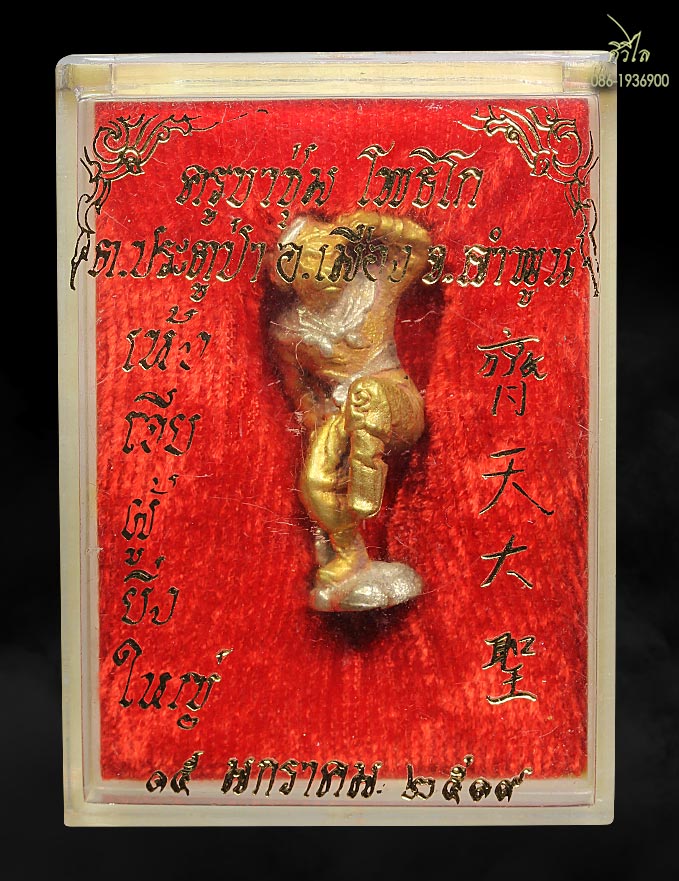 ศิวิไล
086-1936900
ครูบาชุ่ม โพธิโก
ต.ประตูป่า อ.เมือง จ.ลำพูน
เห้ง
เจีย
ผู้
ยิ่ง
ใหญ่
齊
天
大
聖
๑๕ มกราคม ๒๕๑๙